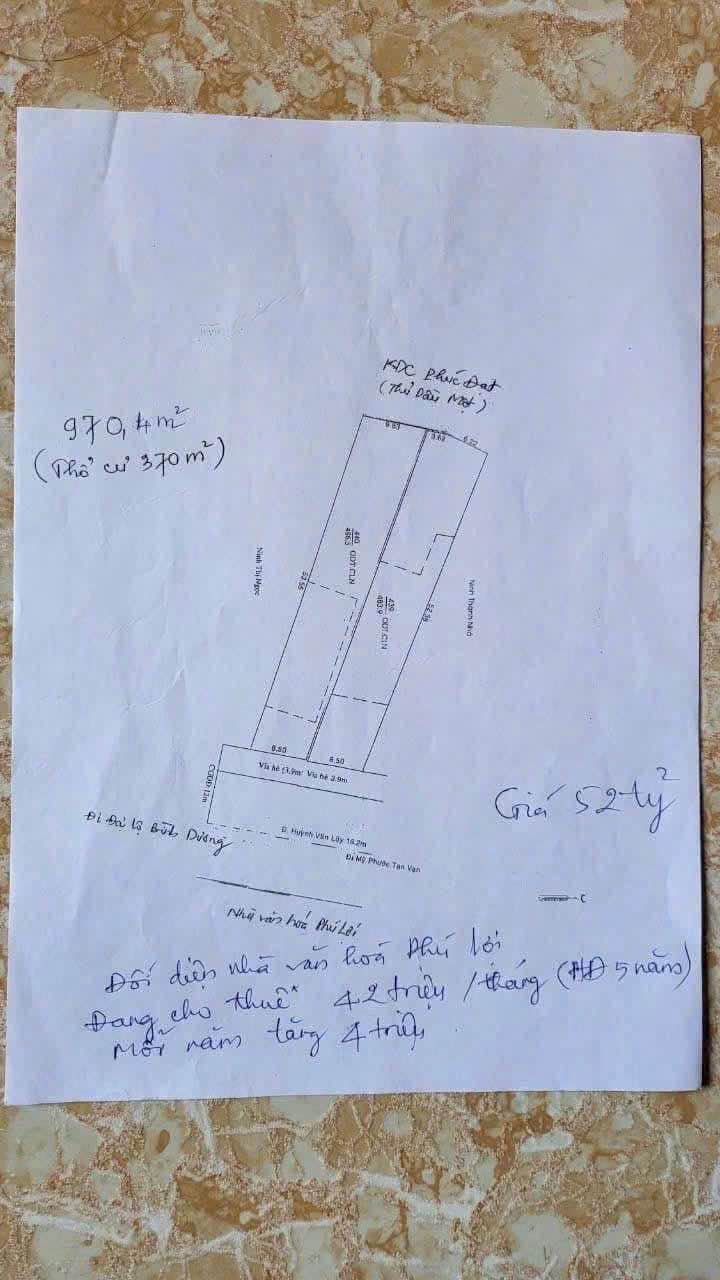 KDC Phúc Đạt
(Thủ Dầu Một)
970,4m²
(Thổ cư 370m²)
9.63
3.63
6.22
440
486.5
ODT.CLN
Ninh Thị Ngọc
52.55
439
483.9
ODT.CLN
52.58
Ninh Thanh Nhỏ
8.50
8.50
Vỉa hè 3.9m Vỉa hè 3.9m
Giá 52 tỷ
Đi Đại lộ Bình Dương
Đ. Huỳnh Văn Lũy 16.2m
Đi Mỹ Phước Tân Vạn
Nhà văn hoá Phú Lợi
Đối diện nhà văn hoá Phú Lợi
Đang cho thuê 42 triệu / tháng (HĐ 5 năm)
Mỗi năm tăng 4 triệu.